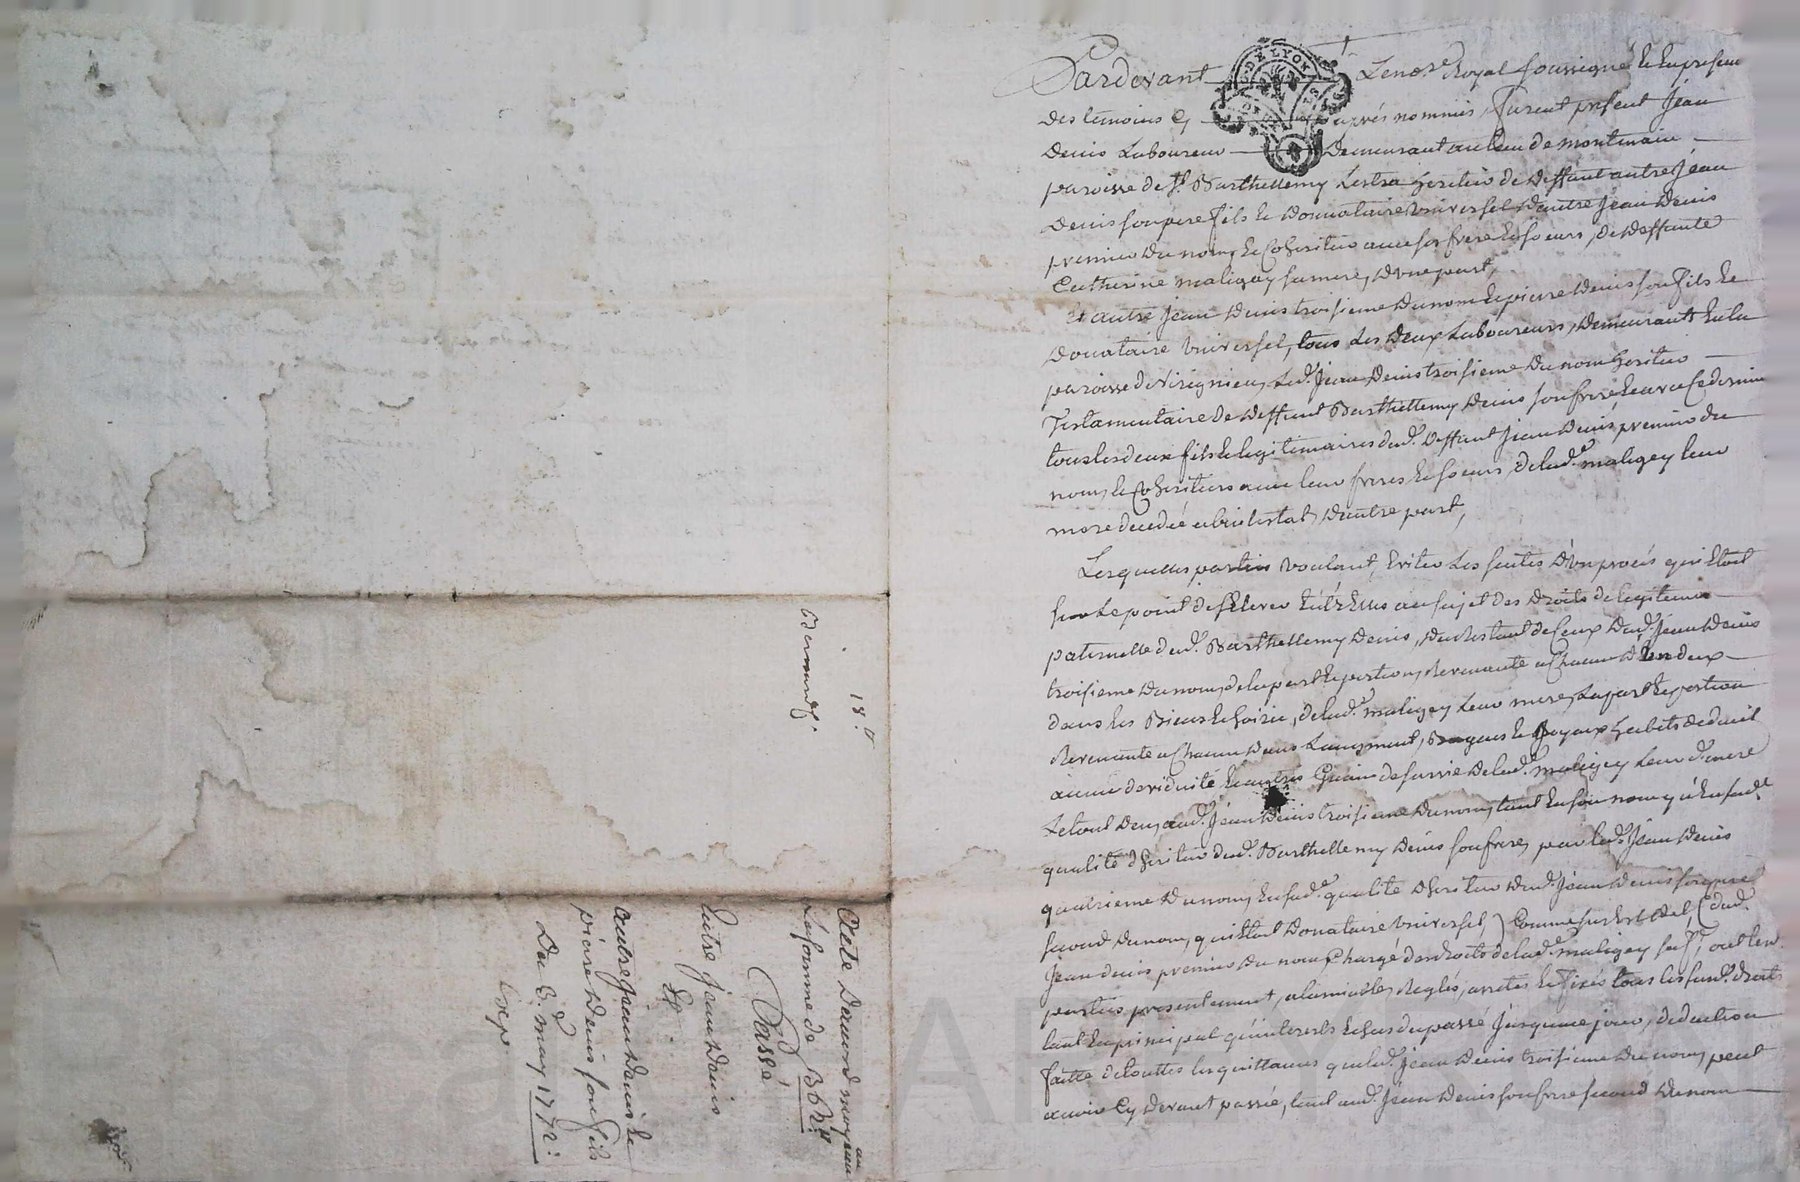 Pardevant Le no.re Royal soussigné & En presence
DE LYON
des temoins Cy après nommés, Furent present Jean
Denis Laboureur Demeurant au lieu de montmain
paroisse de St. Barthellemy Lestra heritier de deffunt autre Jean
Denis son pere fils & Donnataire Universel d'autre Jean Denis
premier du nom, & Coheritier avec ses frere & soeurs, de deffunte
Catherine maligay sa mere, d'une part,
Et autre Jean Denis troisieme du nom & pierre Denis son fils &
Donataire Universel, tous Les Deux Laboureurs, Demeurants En la
paroisse de Virignieu, Led. Jean Denis troisieme du nom heritier
Testamentaire de deffunt Barthellemy Denis son frere
tous les deux fils & legitimaires dud. deffunt Jean Denis premier du
nom, & Coheritiers avec leur freres & soeurs, de lad. maligay leur
mere decedée abintestat, d'autre part,
Lesquelles parties voulant, Eviter Les suites d'un procés qui Etoit
sur Le point de s'Elever Entr'Elles au sujet des droits de legitime
paternelle dud. Barthellemy Denis, de Ceux dud. Jean Denis
troisieme du nom, de la part & portion Revenante a Chacun d'En deux
dans les Biens & hoirie, de lad. maligay Leur mere, La part & portion
Revenante a Chacun dans Laugment, Bagues & Joyaux habits de deuil
année de viduité, & autres Gains de survie de lad. maligay Leur d. mere
Le tout deu, aud. Jean Denis troisieme du nom, tant En son nom, qu'En sad.
qualité d'heritier dud. Barthellemy Denis son frere, par led. Jean Denis
quatrieme du nom, En sad. qualité d'heritier dud. Jean Denis son pere
second du nom, qui Etoit Donataire Universel, Comme sus Est dit, dud.
Jean Denis premier du nom Chargé des droits de lad. maligay sa f.e, ont lesd.
parties presentement, alamiable, Reglés, arretés & Fixés tous les susd. droits
tant En principal qu'interests Echus du passé Jusqu'a ce jour, deduction
faitte de touttes les quittances que led. Jean Denis troisieme du nom, peut
avoir Cy devant passé, tant aud. Jean Denis son frere second du nom
18.
Acte D'accord moyennant
La somme de 362.
Passé
Entre Jean Denis
&
autre Jean Denis &
pierre Denis son fils
Du 3. may 1772.
Exp.